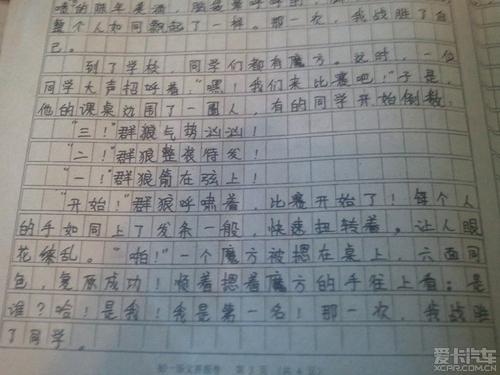 整个人如同飘起了一样。那一次，我战胜了自
己。
到了学校，同学们都有魔方。这时，一位
同学大声招呼着，“嘿！我们来比赛吧，”于是，
他的课桌边围了一圈人，有的同学开始倒数：
“三！”群狼气势汹汹！
“二！”群狼整装待发！
“一！”群狼箭在弦上！
“开始！”群狼呼啸着，比赛开始了！每个人
的手如同上了发条一般，快速扭转着。让人眼
花缭乱。“啪！”一个魔方被摁在桌上，六面同
色，复原成功！顺着摁着魔方的手往上看：是
谁？哈！是我！我是第一名！那一次，我战胜
了同学。
初一语文答题卷 第3页（共4页）
爱卡汽车
XCAR.COM.CN